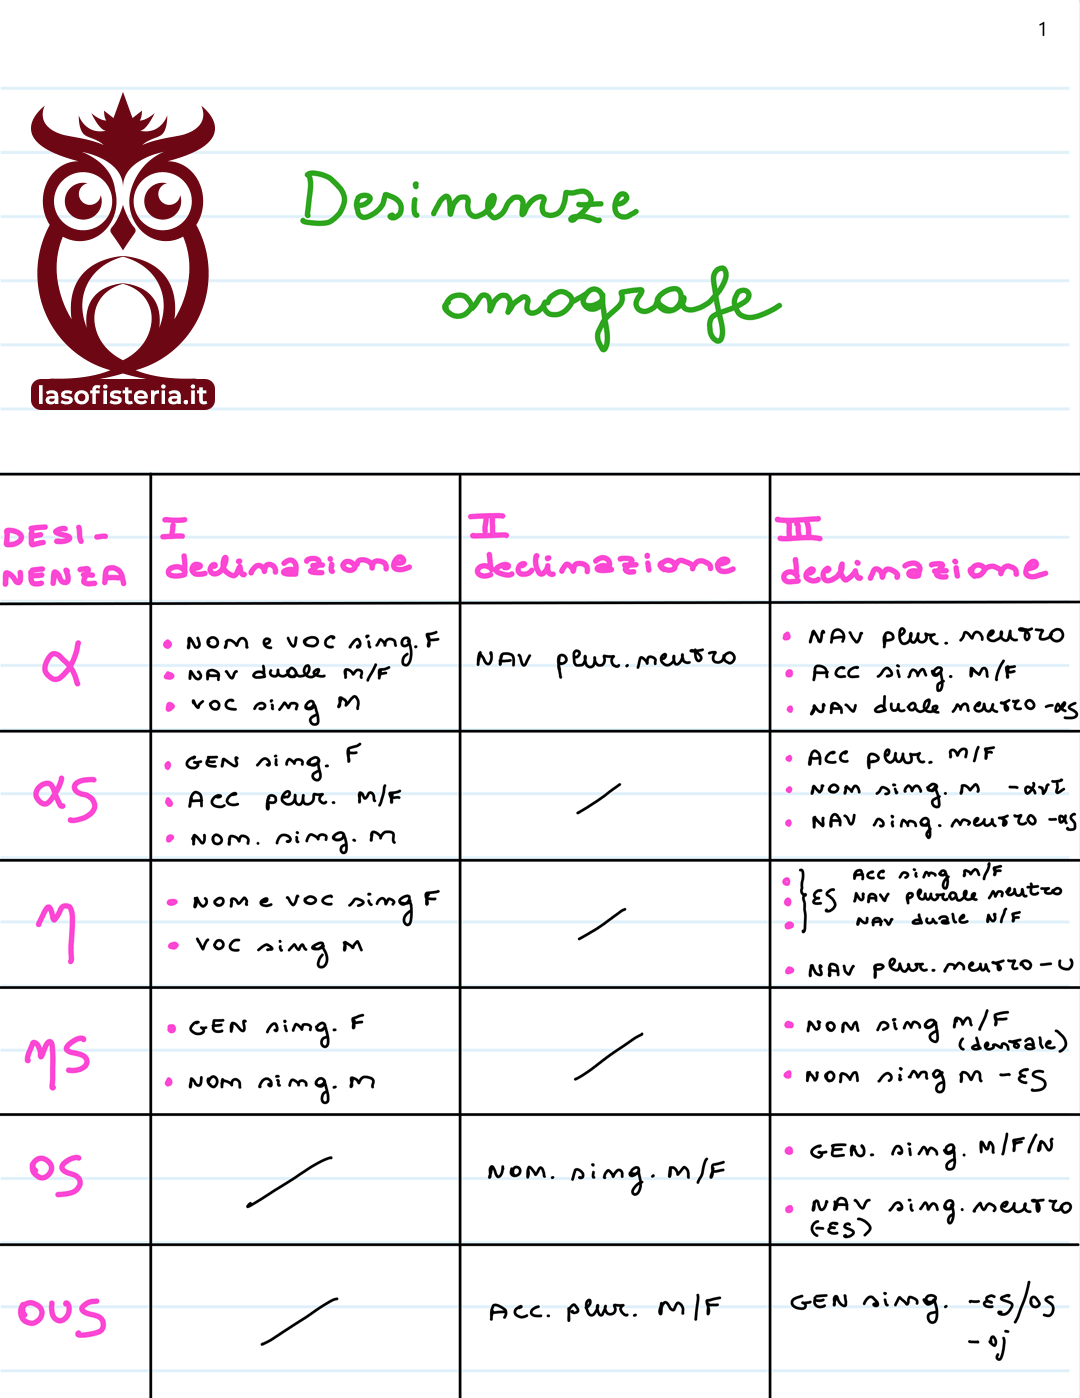 1
lasofisteria.it
Desinenze
omografe
DESI-
NENZA
I
declinazione
II
declinazione
III
declinazione
α
• NOM e VOC sing. F
• NAV duale M/F
• VOC sing M
NAV plur. neutro
• NAV plur. neutro
• ACC sing. M/F
• NAV duale neutro -ας
ας
• GEN sing. F
• ACC plur. M/F
• NOM. sing. M
/
• ACC plur. M/F
• NOM sing. M -αντ
• NAV sing. neutro -ας
η
• NOM e VOC sing F
• VOC sing M
/
• ες ACC sing M/F
• NAV plurale neutro
• NAV duale N/F
• NAV plur. neutro -υ
ης
• GEN sing. F
• NOM sing. M
/
• NOM sing M/F
(dentale)
• NOM sing M -ες
ος
/
NOM. sing. M/F
• GEN. sing. M/F/N
• NAV sing. neutro
(-ες)
ους
/
ACC. plur. M/F
GEN sing. -ες/ος
-οj